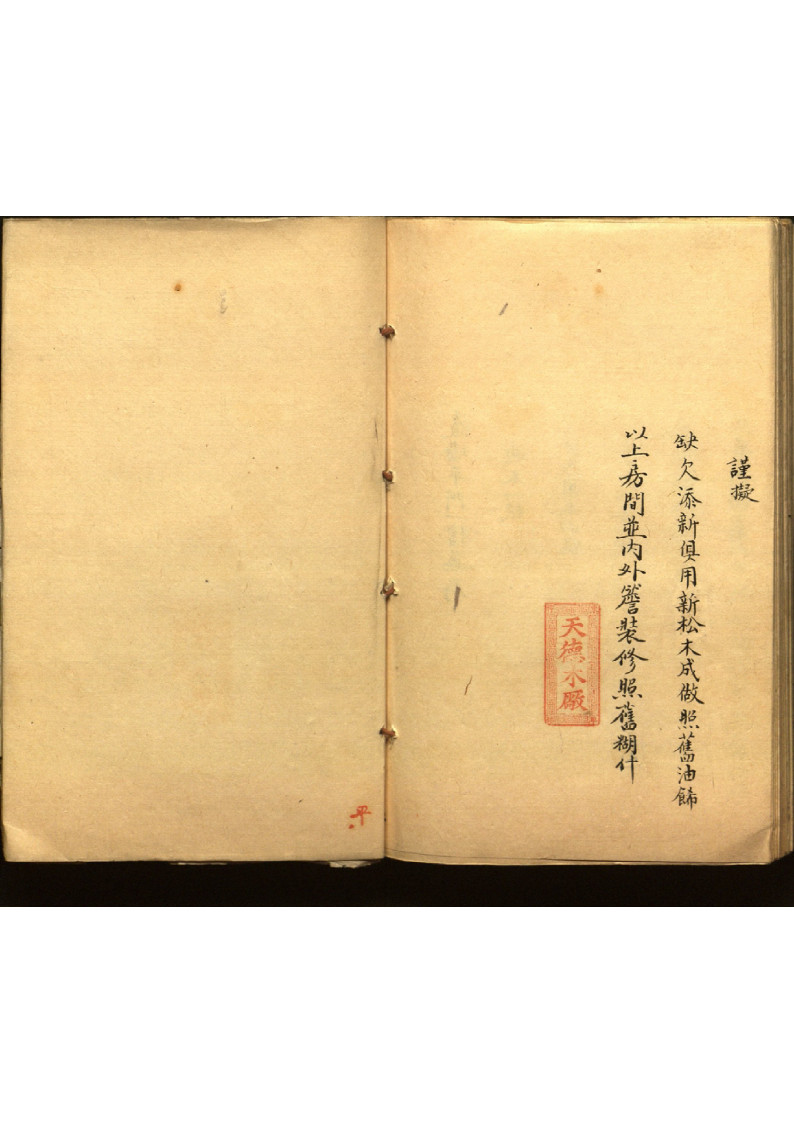 謹擬
缺欠添新俱用新松木成做照舊油餙
以上房間並內外簷裝修照舊糊什
天德木厰